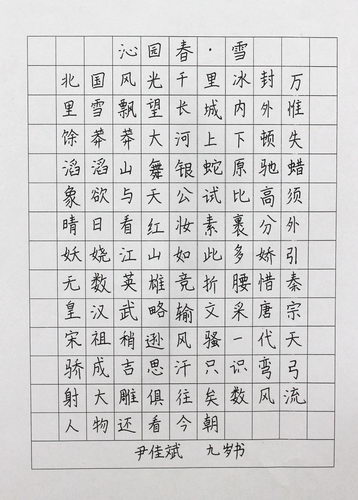 沁园春·雪
北国风光千里冰封万
里雪飘望长城内外惟
馀莽莽大河上下顿失
滔滔山舞银蛇原驰蜡
象欲与天公试比高须
晴日看红妆素裹分外
妖娆江山如此多娇引
无数英雄竞折腰惜秦
皇汉武略输文采唐宗
宋祖稍逊风骚一代天
骄成吉思汗只识弯弓
射大雕俱往矣数风流
人物还看今朝
尹佳斌 九岁书